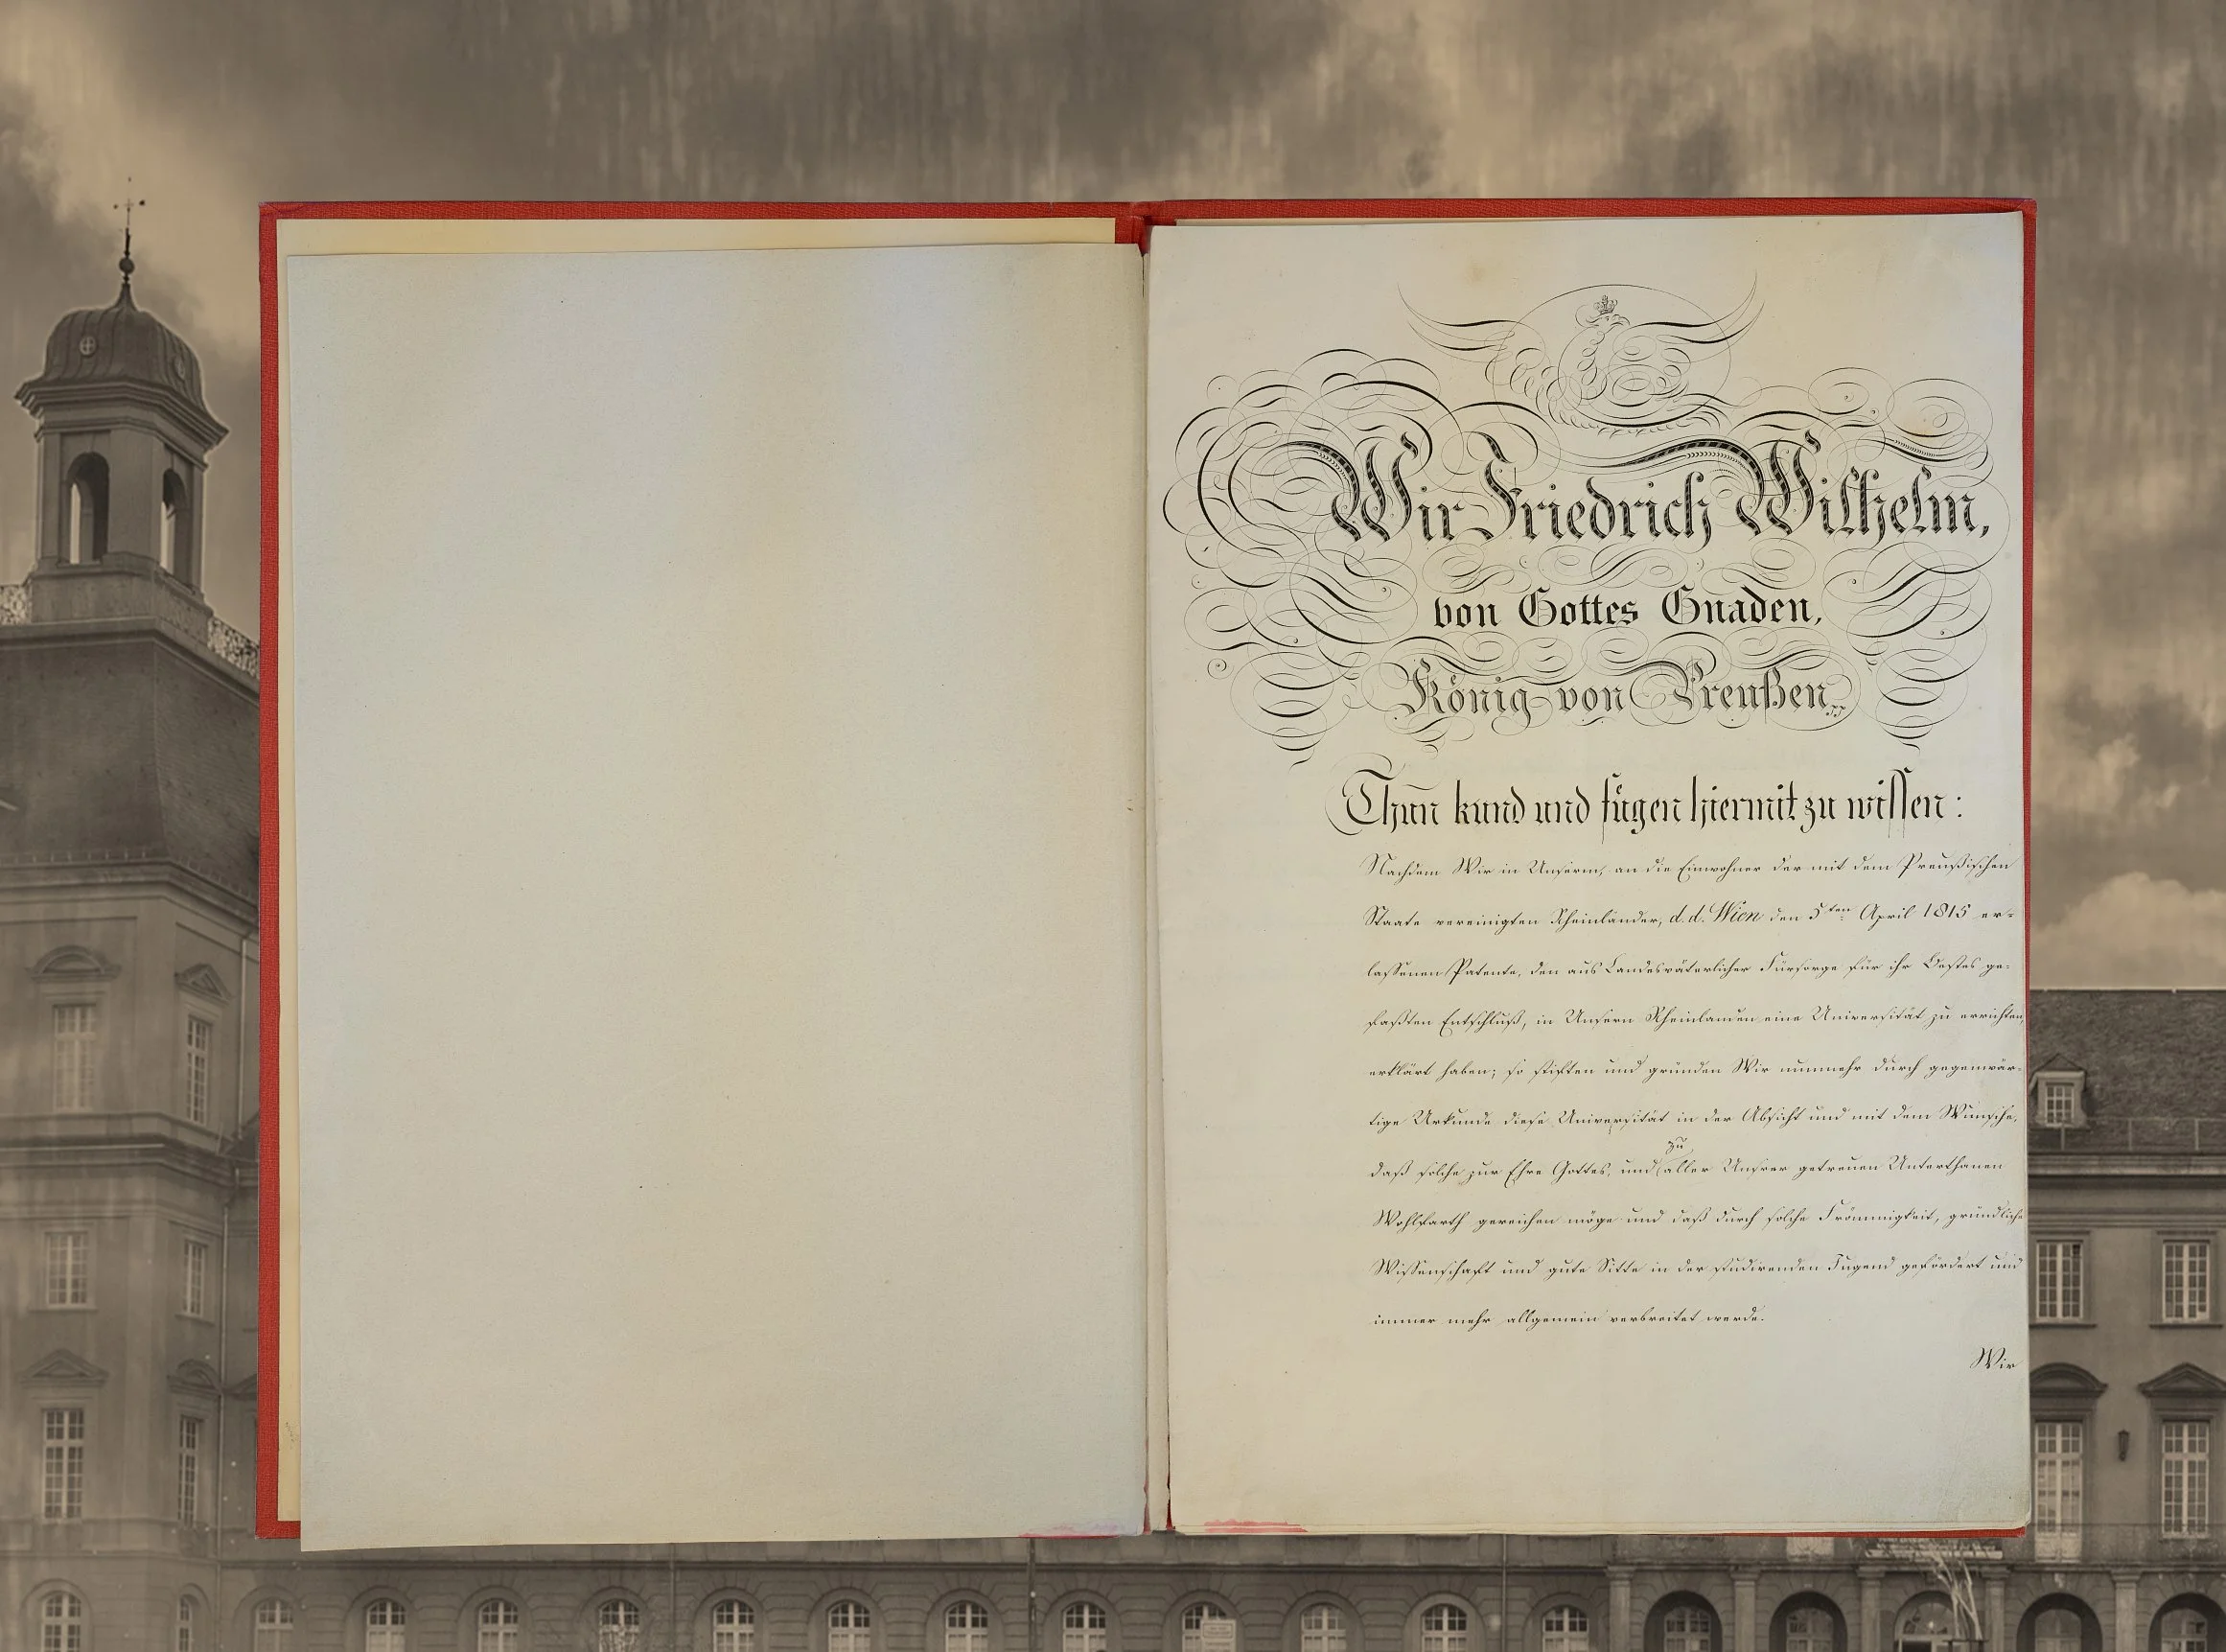 Wir Friedrich Wilhelm,
von Gottes Gnaden,
König von Preußen
Thun kund und fügen hiermit zu wissen:
Nachdem Wir in Unserm, an die Einwohner der mit dem Preußischen
Staate vereinigten Rheinländer, d. d. Wien den 5ten April 1815 er=
lassenen Patente, den aus Landesväterlicher Fürsorge für ihr Bestes ge=
faßten Entschluß, in Unsern Rheinlanden eine Universität zu errichten,
erklärt haben; so stiften und gründen Wir nunmehr durch gegenwär=
tige Urkunde diese Universität in der Absicht und mit dem Wunsche,
daß solche zur Ehre Gottes, und zu aller Unsrer getreuen Unterthanen
Wohlfarth gereichen möge und daß durch solche Frömmigkeit, gründliche
Wissenschaft und gute Sitte in der studirenden Jugend gefördert und
immer mehr allgemein verbreitet werde.
Wir